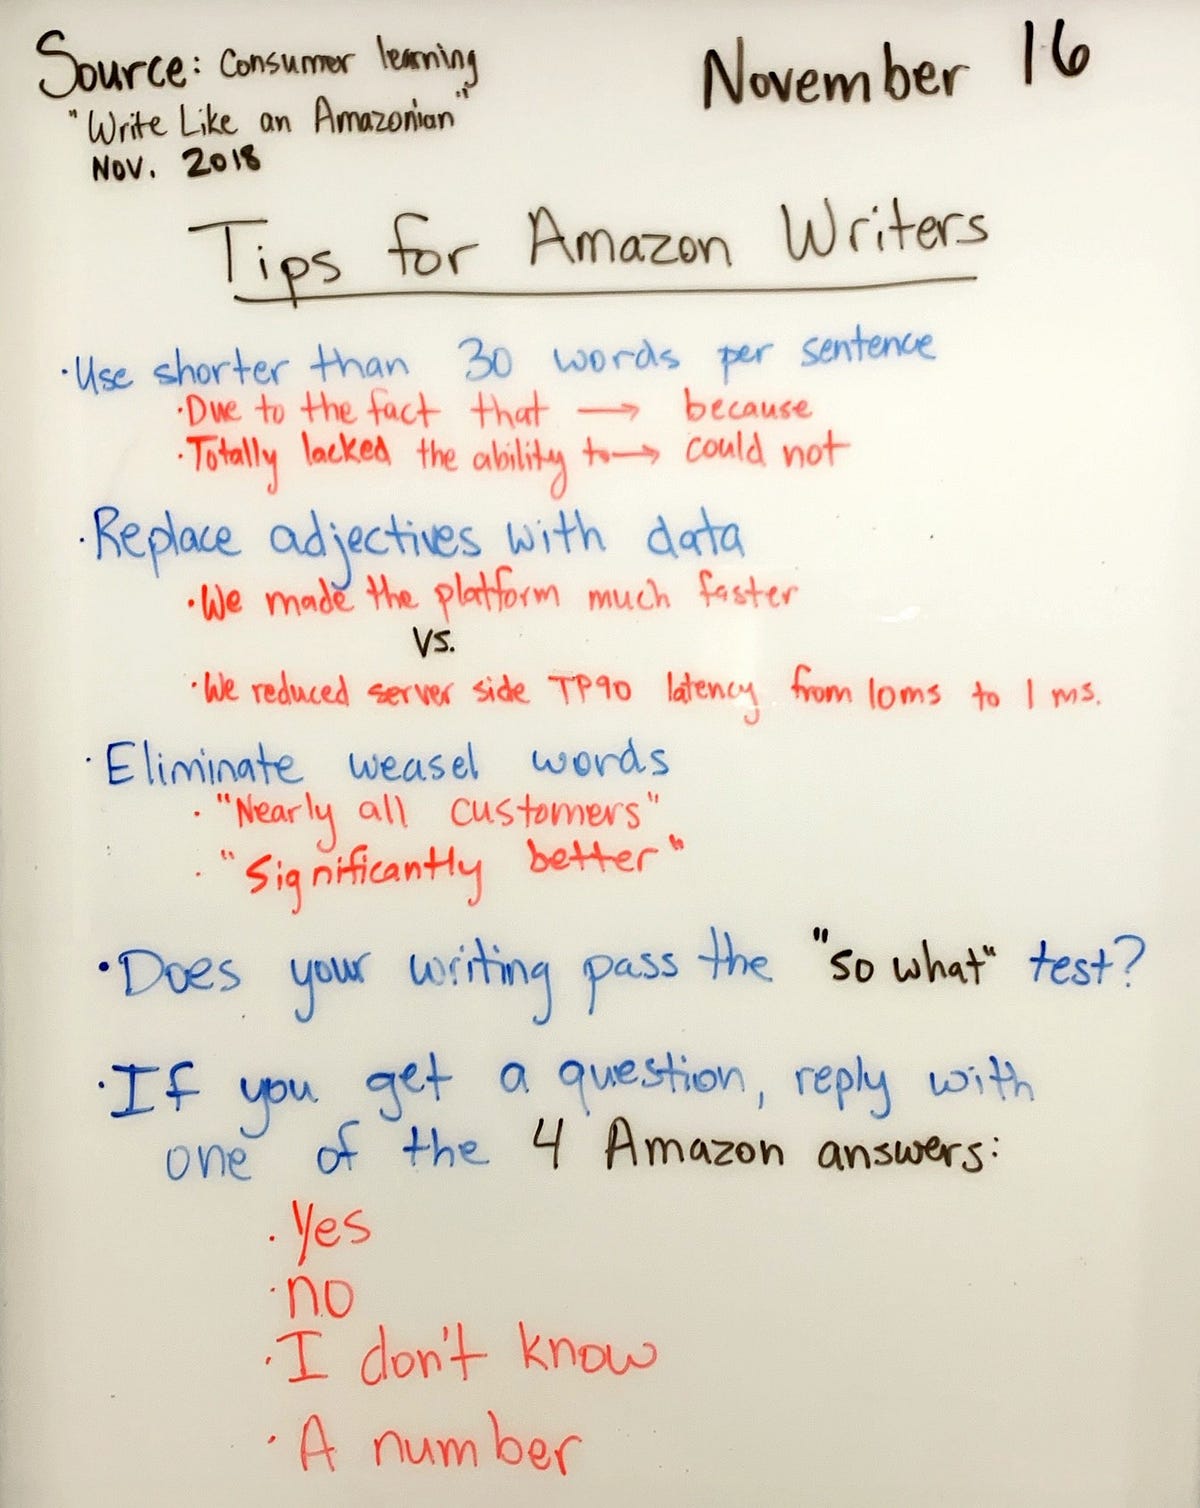 Source: Consumer learning
"Write Like an Amazonian"
Nov. 2018
November 16
Tips for Amazon Writers
· Use shorter than 30 words per sentence
· Due to the fact that → because
· Totally lacked the ability to → could not
· Replace adjectives with data
· We made the platform much faster
vs.
· We reduced server side TP90 latency from 10ms to 1 ms.
· Eliminate weasel words
· "Nearly all customers"
· "Significantly better"
· Does your writing pass the "so what" test?
· If you get a question, reply with
one of the 4 Amazon answers:
· Yes
· no
· I don't know
· A number